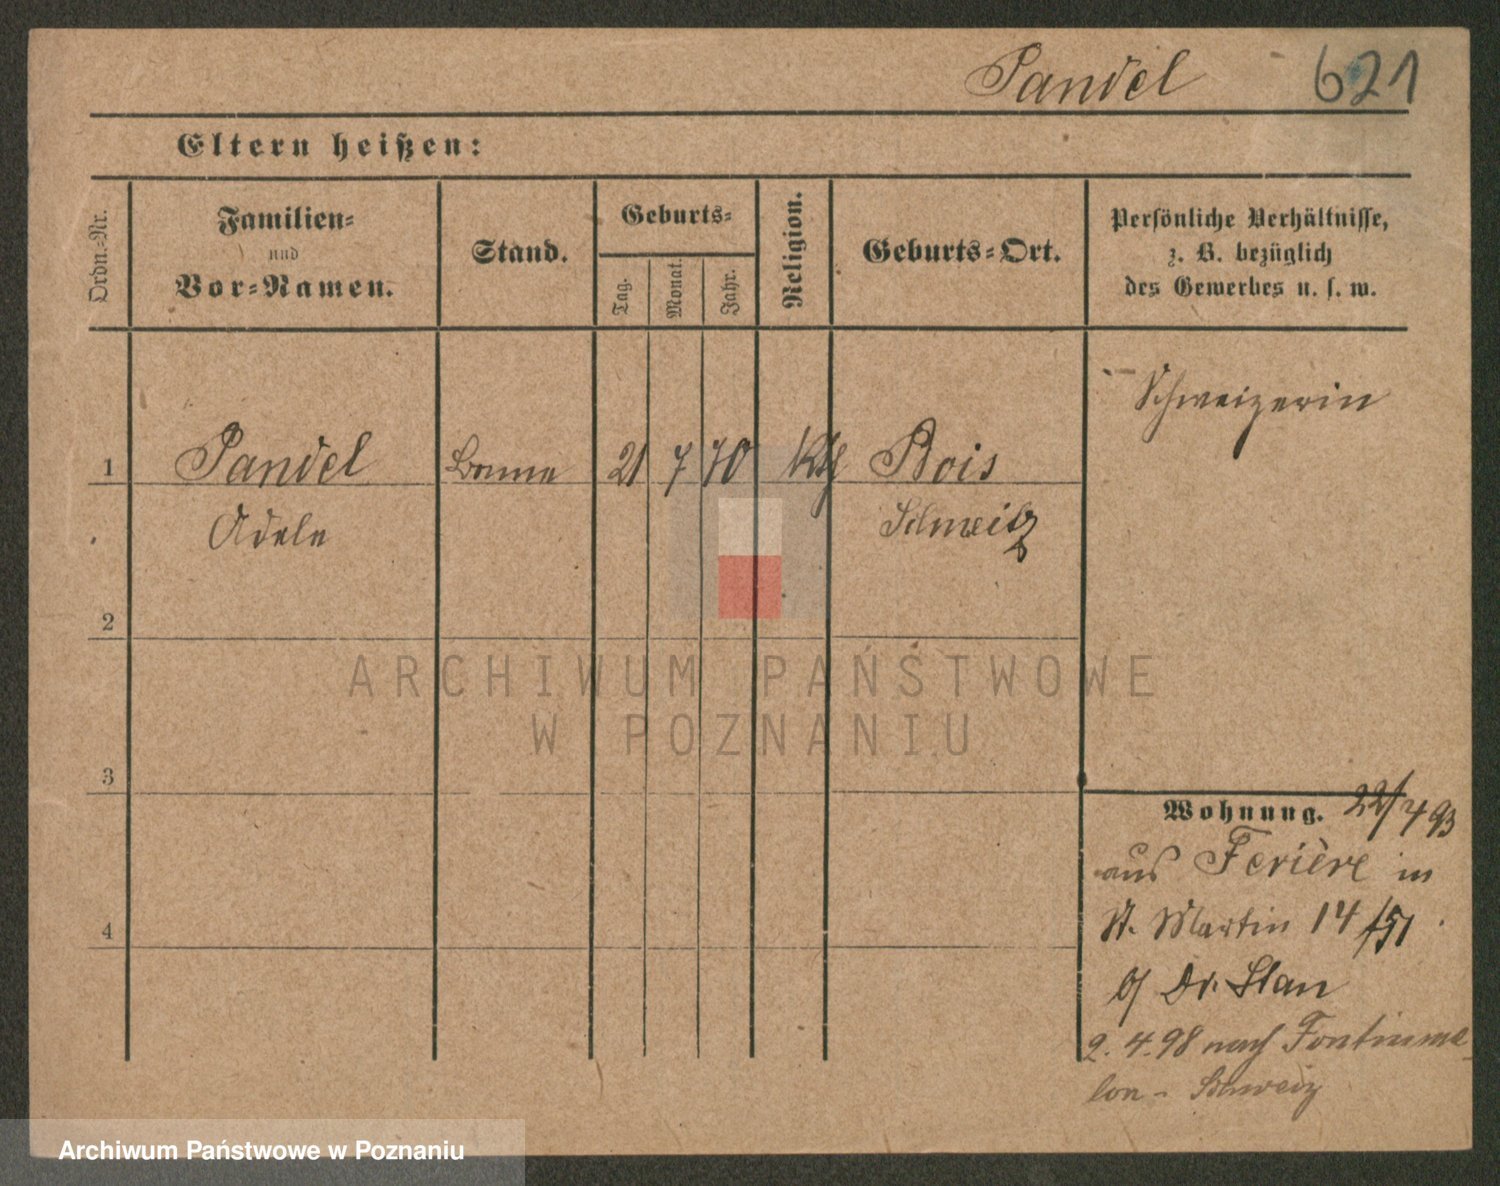 Pandel 621
Eltern heißen:
Ordn.=Nr.
Familien=
und
Vor=Namen.
Stand.
Geburts=
Tag.
Monat.
Jahr.
Religion.
Geburts=Ort.
Persönliche Verhältnisse,
z. B. bezüglich
des Gewerbes u. s. w.
Schweizerin
1 Pandel Bonne 21 7 70 Kth Bois
Adele Schweitz
2
3
4
Wohnung. 22/4 93
aus Ferière in
St. Martin 14/51
b/ Dr. Stan
2. 4. 98 nach
lon - Schweiz
ARCHIWUM PAŃSTWOWE
W POZNANIU
Archiwum Państwowe w Poznaniu